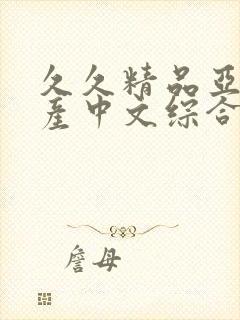 久久精品亚
产中文综合
詹母